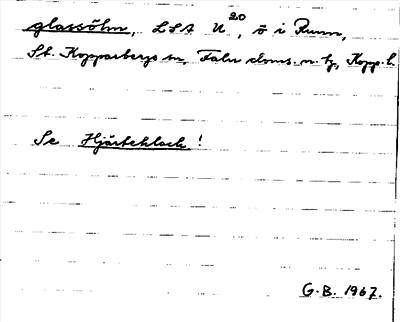 glassöhn, LSA U 20, ö i Runn,
St. Kopparbergs sn, Falu doms. n. tg, Kopp. l.
Se Hjärteklack!
G.B. 1967.